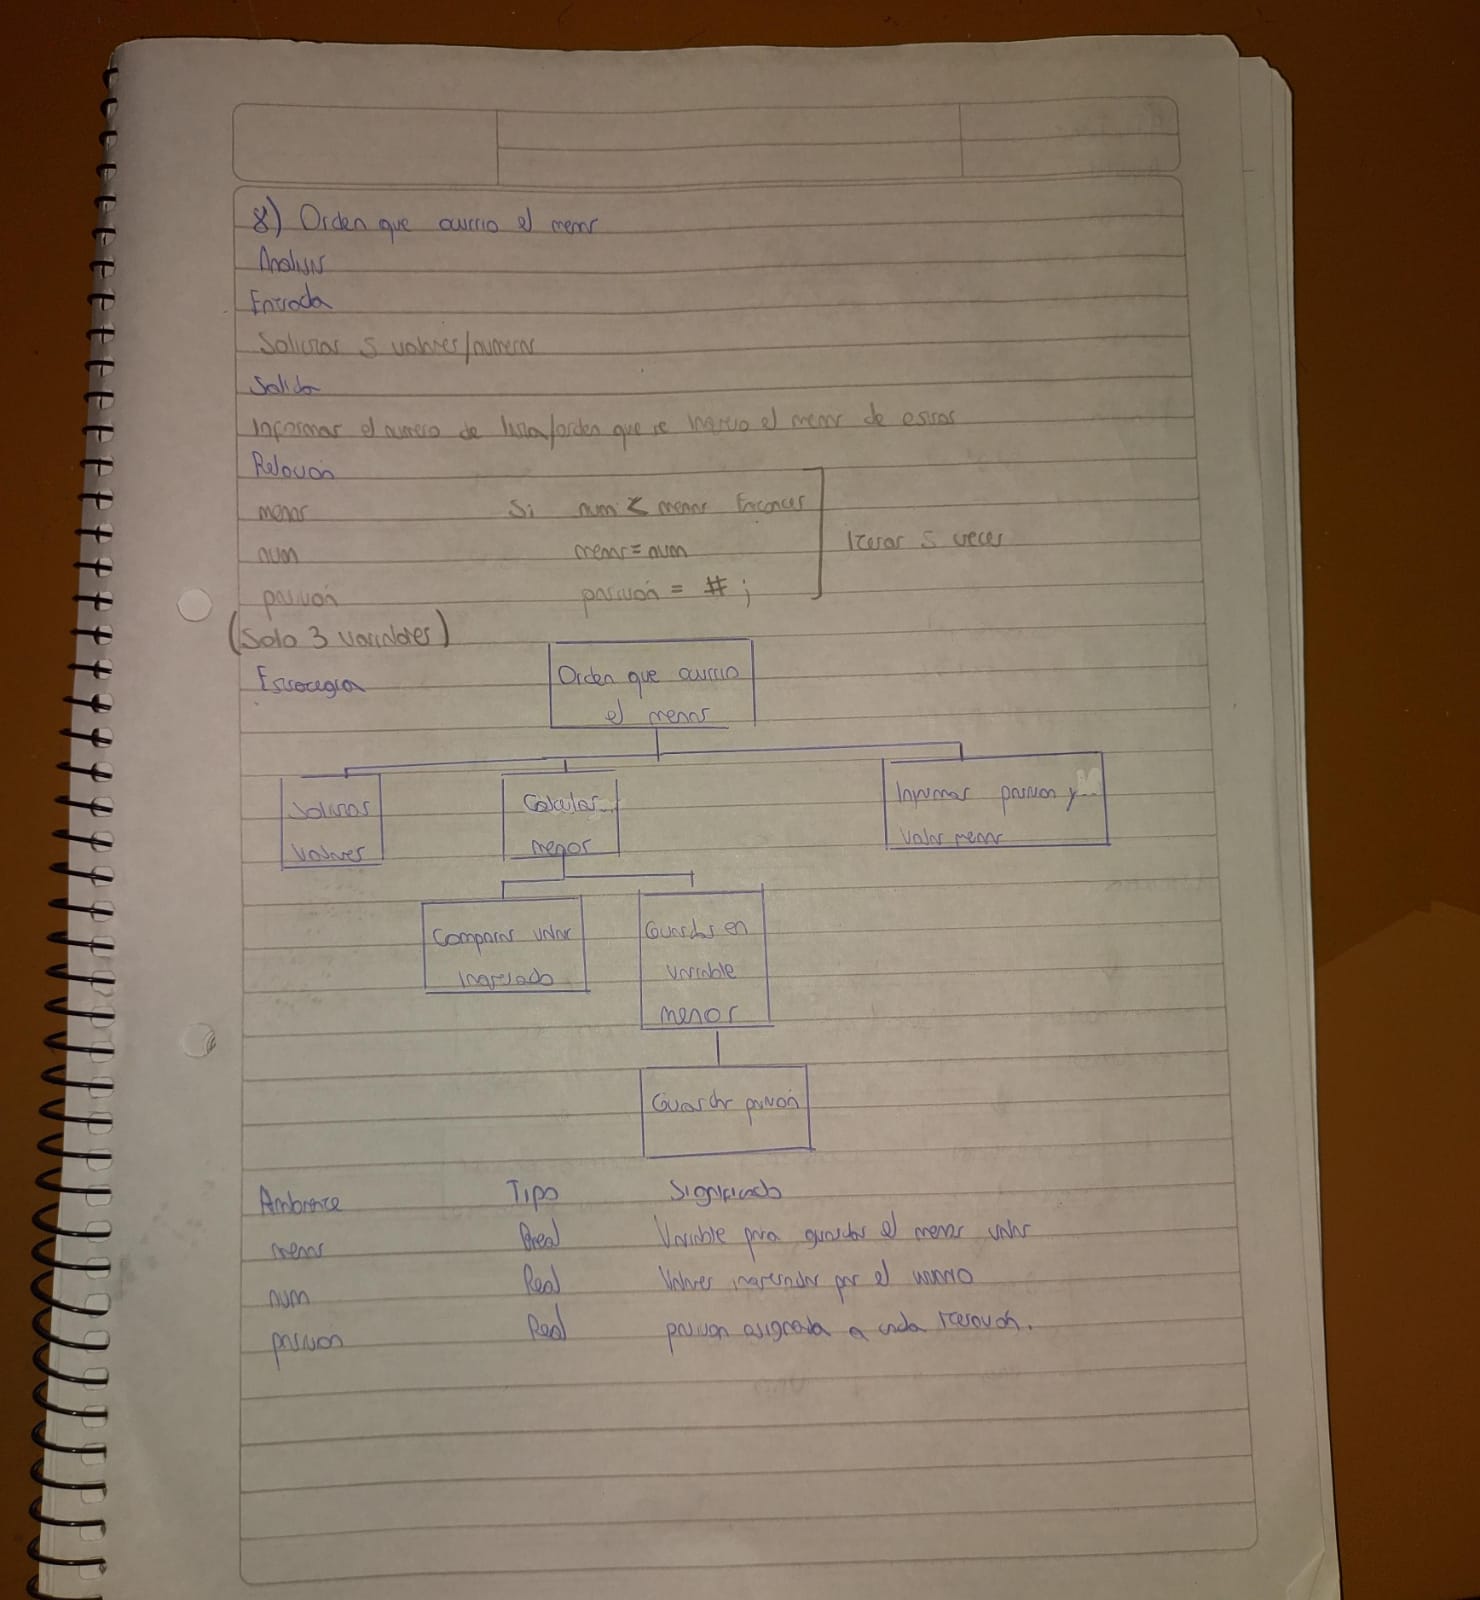 8) Orden que ocurrio el menor
Analisis
Entrada
Solicitar 5 valores/numeros
Salida
Informar el numero de lista/orden que se ingreso el menor de estos
Relacion
menor Si num < menor Entonces
num menor = num Iterar 5 veces
posición posición = # ;
(Solo 3 variables)
Estrategia
Orden que ocurrio
el menor
Solicitar
valores
Calcular
menor
Informar posicion y
valor menor
Comparar valor
ingresado
Guardar en
variable
menor
Guardar posición
Ambiente Tipo Significado
menor Real Variable para guardar el menor valor
num Real Valores ingresados por el usuario
posición Real posicion asignada a cada iteración.